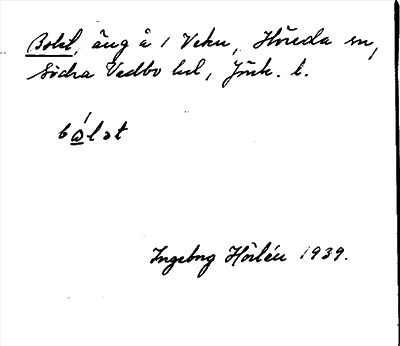 Bolet, äng å 1 Veku, Höreda sn,
Södra Vedbo hd, Jönk. l.
bálət
Ingebng Hörlén 1939.